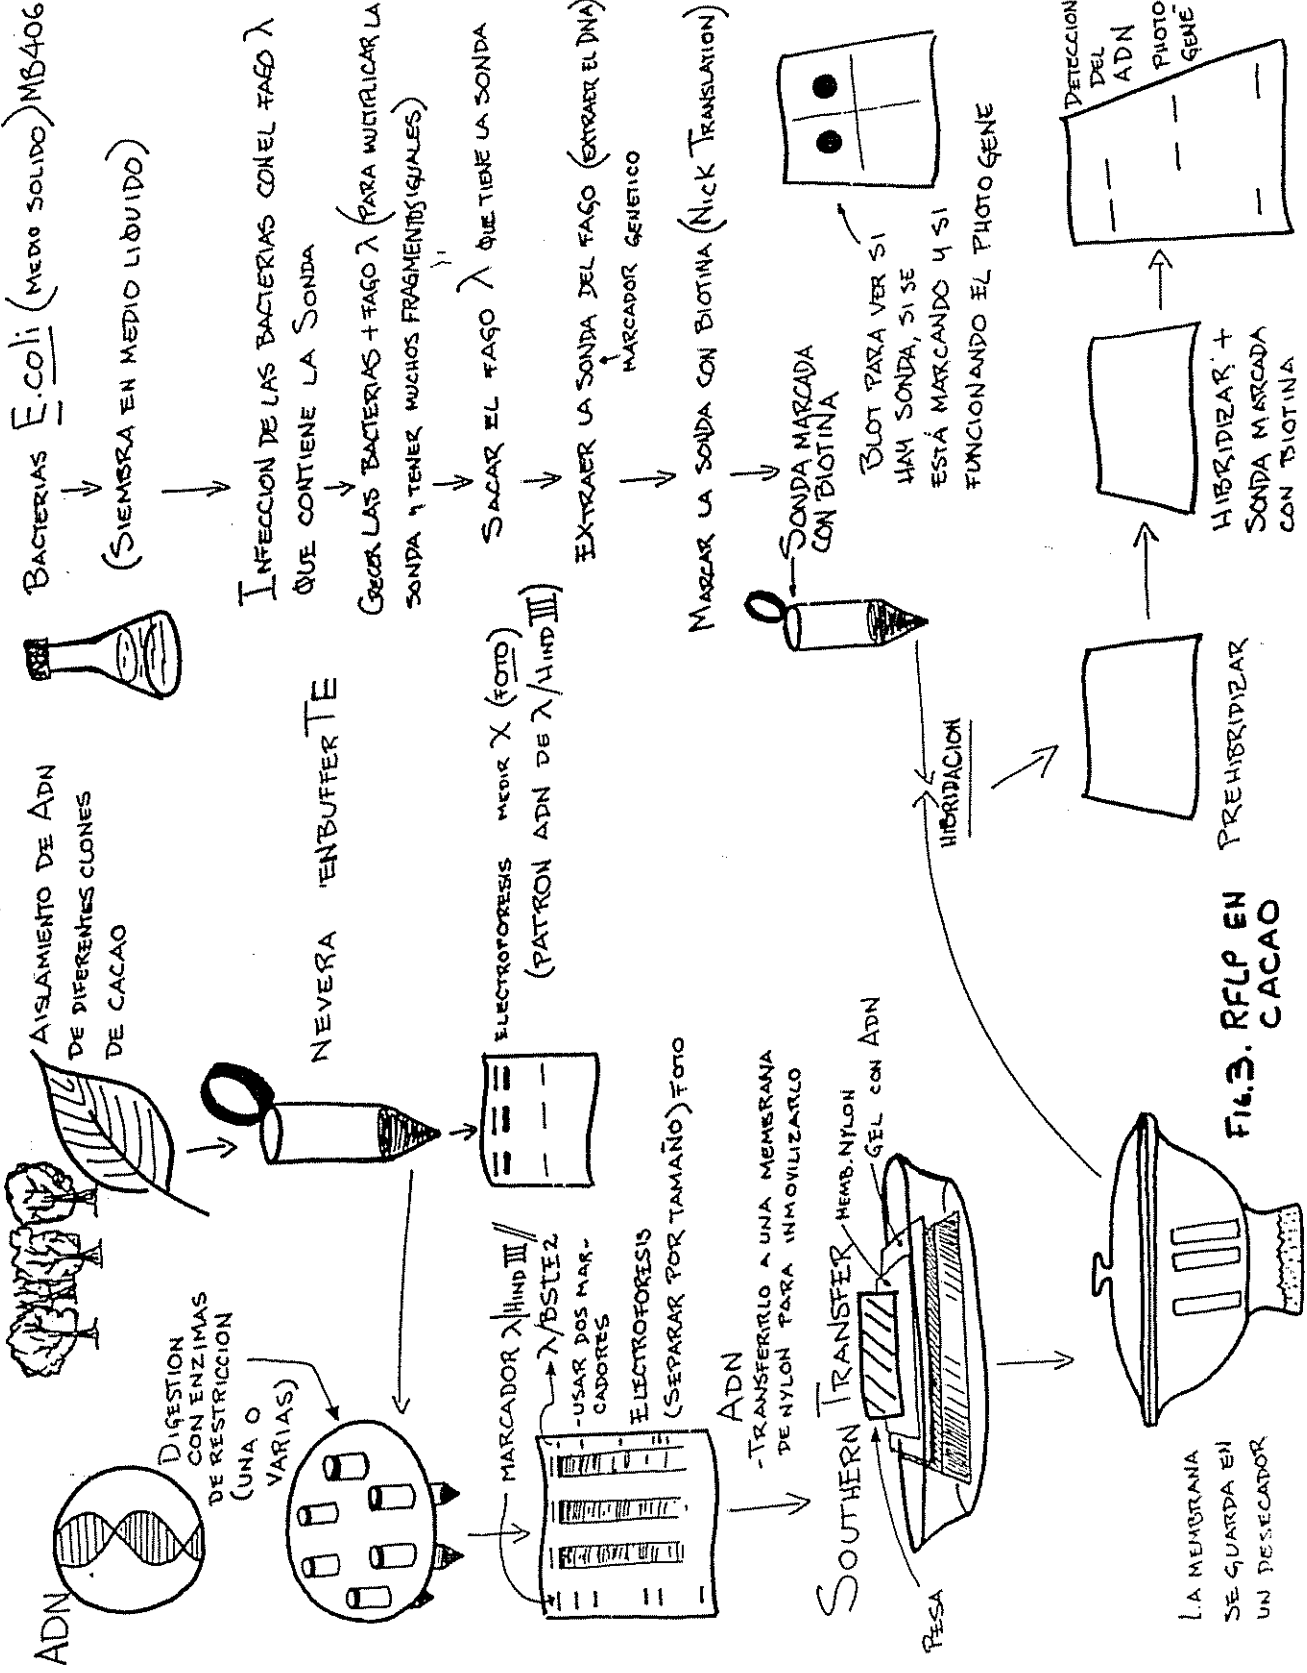 ADN
DIGESTION
CON ENZIMAS
DE RESTRICCION
(UNA O
VARIAS)
AISLAMIENTO DE ADN
DE DIFERENTES CLONES
DE CACAO
NEVERA EN BUFFER TE
ELECTROFORESIS MEDIR λ (FOTO)
(PATRON ADN DE λ/HIND III)
MARCADOR λ/HIND III
λ/BSTE2
-USAR DOS MAR-
CADORES
ELECTROFORESIS
(SEPARAR POR TAMAÑO) FOTO
ADN
-TRANSFERIRLO A UNA MEMBRANA
DE NYLON PARA INMOVILIZARLO
SOUTHERN TRANSFER
MEMB. NYLON
GEL CON ADN
PESA
LA MEMBRANA
SE GUARDA EN
UN DESECADOR
BACTERIAS E.coli (MEDIO SOLIDO) MB406
(SIEMBRA EN MEDIO LIQUIDO)
INFECCION DE LAS BACTERIAS CON EL FAGO λ
QUE CONTIENE LA SONDA
CRECER LAS BACTERIAS + FAGO λ (PARA MULTIPLICAR LA
SONDA Y TENER MUCHOS FRAGMENTOS IGUALES)
SACAR EL FAGO λ QUE TIENE LA SONDA
EXTRAER LA SONDA DEL FAGO (EXTRAER EL DNA)
MARCADOR GENETICO
MARCAR LA SONDA CON BIOTINA (NICK TRANSLATION)
SONDA MARCADA
CON BIOTINA
BLOT PARA VER SI
HAY SONDA, SI SE
ESTÁ MARCANDO Y SI
FUNCIONANDO EL PHOTO GENE
HIBRIDACION
PREHIBRIDIZAR
HIBRIDIZAR +
SONDA MARCADA
CON BIOTINA
DETECCION
DEL
ADN
PHOTO
GENE
FIG.3. RFLP EN
CACAO